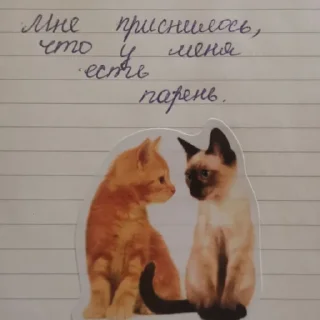 Мне приснилось,
что у меня
есть
парень.